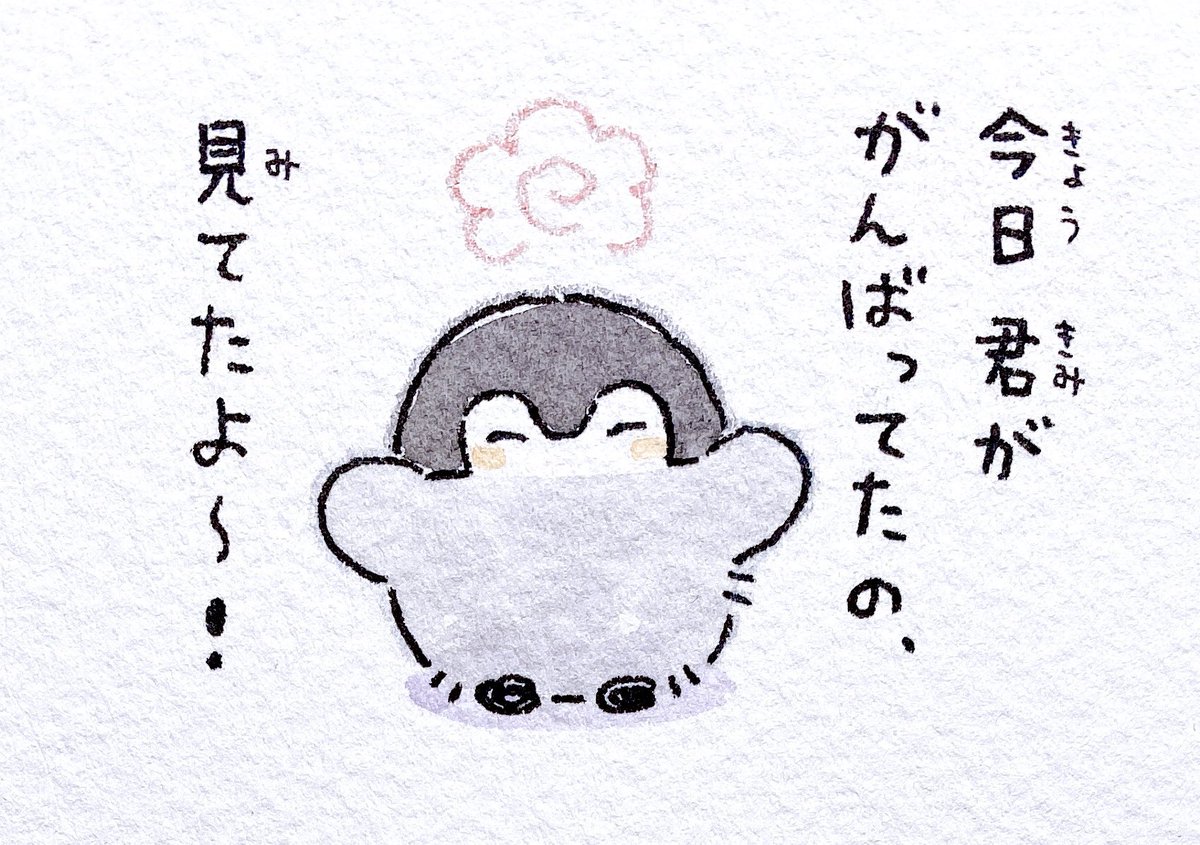 今日君が
がんばってたの、
見てたよ〜!
きょう
きみ
み